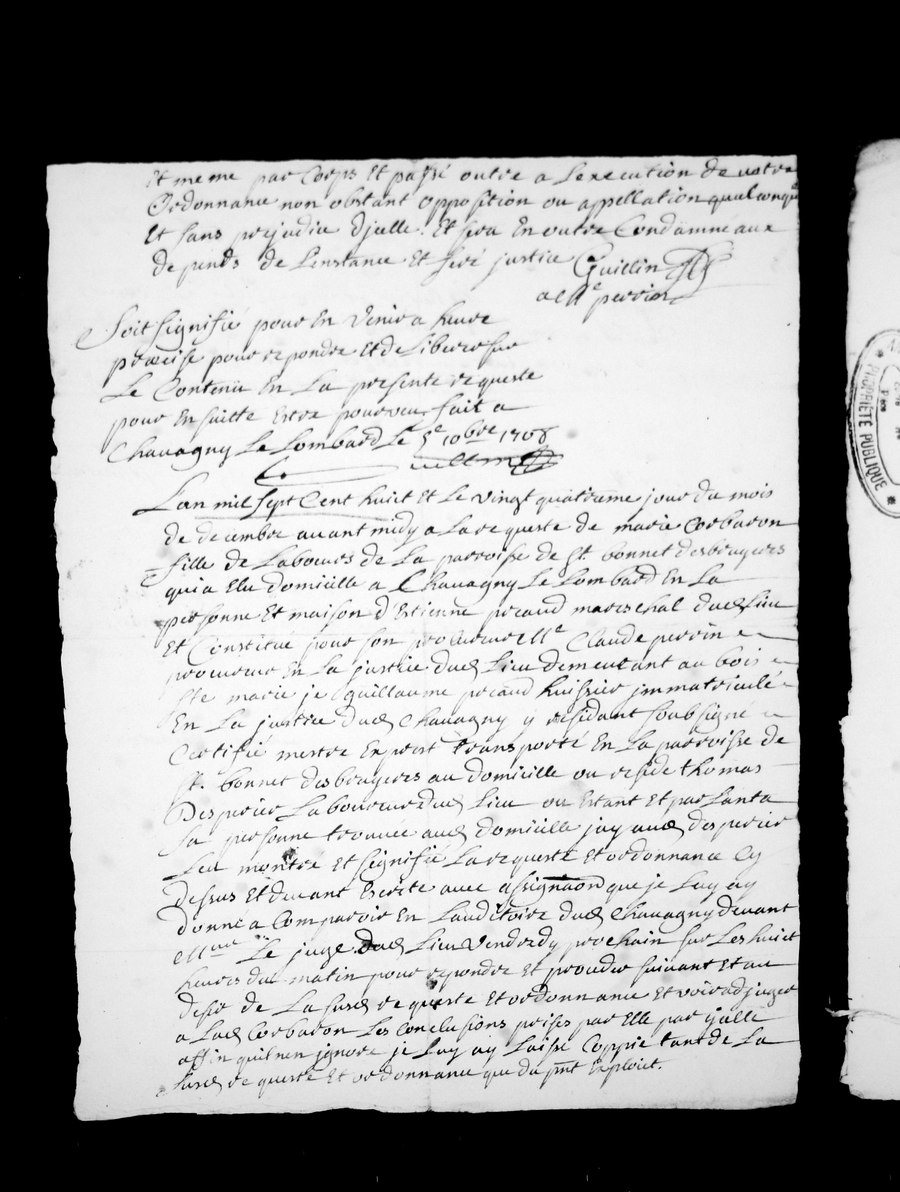 Et meme par Corps Et passé outre a Lexecution de votre
Ordonnance non obstant opposition ou appellation quelconque
Et sans prejudice djcelle. Et sera En outre Condamné aux
depends de Linstance Et feré justice Guillin
Me perrin
Soit signifié pour En venir a heure
precise pour repondre Et deliberer sur
Le Contenu En La presente requeste
pour En suitte Estre pourveu, fait a
Chavagny Le Lombard Le 5e 10bre 1708
Lan mil sept Cent huict Et Le vingt quatrieme jour du mois
de decembre avant midy a La requeste de marie Corbaron
fille de Laboeurs de La parroisse de St. bonnet desbruyeres
qui a Elu domicille a Chavagny Le Lombard En La
personne Et maison d'Estienne picaud mareschal dud Lieu
Et Constitué pour son procureur Me Claude perrin
procureur En La justice dud Lieu demeurant au bois
Ste marie je Guillaume picaud huissier jmmatriculé
En La justice dud Chavagny y residant soubsigné
Certiffié mestre Exprest transporté En La parroisse de
St. bonnet desbruyeres au domicille ou reside thomas
Desperier Laboureur dud Lieu ou Estant Et parlant a
sa personne trouvée aud domicille jay aud desperier
Leu montre Et signifié La requeste Et ordonnance Cy
dessus Et devant Escrite avec assignaon que je Luy ay
donné a Comparoir En Lauditoire dud Chavagny devant
Le juge dud Lieu Vendredy prochain sur Les huict
heures du matin pour repondre Et proceder suivant Et au
desir de La susd requeste Et ordonnance Et voir adjuger
a Lad Corbaron Les Conclusions prises par Elle par jcelle
affin quil nen jgnore je Luy ay Laissé Coppie tant de La
susd requeste Et ordonnance que du pnt Exploict.
PROPRIÉTÉ PUBLIQUE